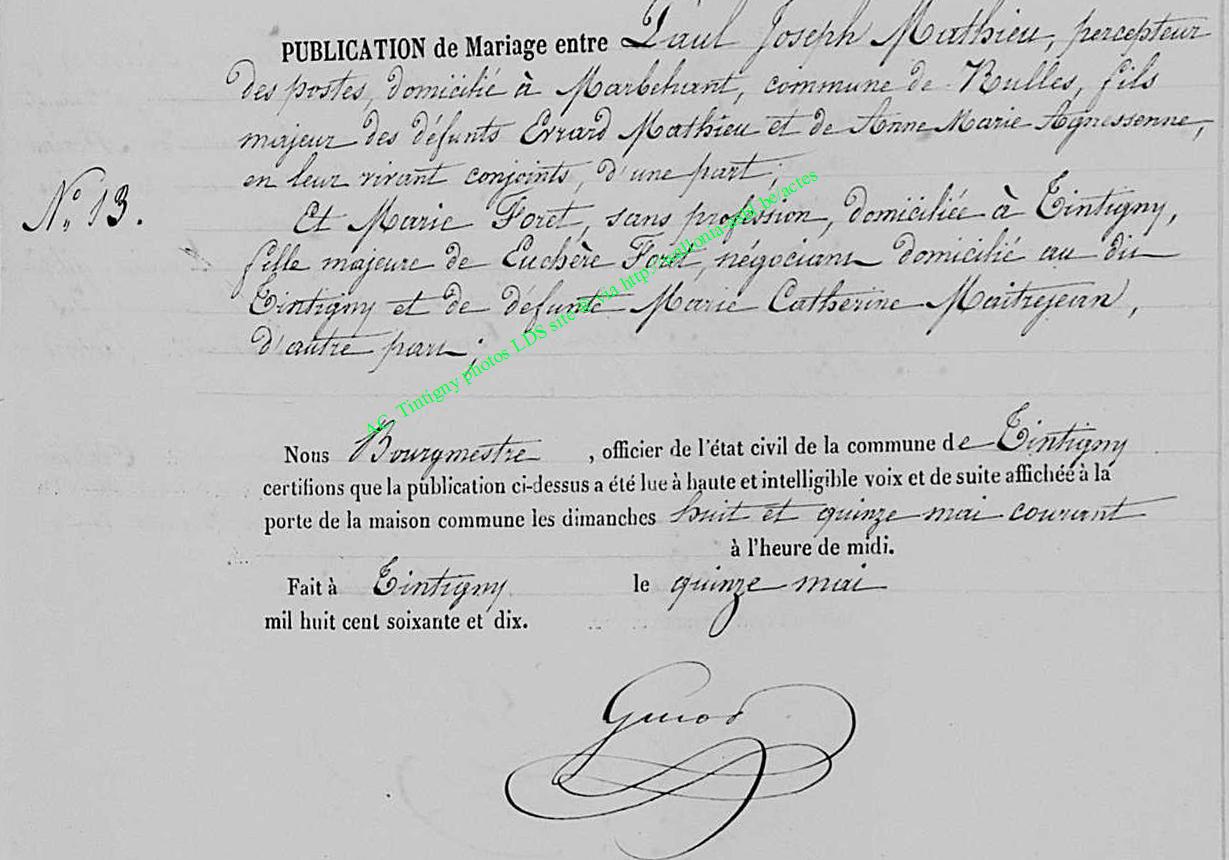 PUBLICATION de Mariage entre Paul Joseph Mathieu, percepteur
des postes, domicilié à Marbehant, commune de Rulles, fils
majeur des défunts Evrard Mathieu et de Anne Marie Agnessenne,
en leur vivant conjoints, d'une part;
N.° 13.
Et Marie Foret, sans profession, domiciliée à Tintigny,
fille majeure de Euchère Foret, négociant domicilié au dit
Tintigny et de défunte Marie Catherine Maitrejean,
d'autre part;
AC Tintigny photos LDS site via be/actes
Nous Bourgmestre, officier de l'état civil de la commune de Tintigny
certifions que la publication ci-dessus a été lue à haute et intelligible voix et de suite affichée à la
porte de la maison commune les dimanches huit et quinze mai courant
à l'heure de midi.
Fait à Tintigny le quinze mai
mil huit cent soixante et dix.